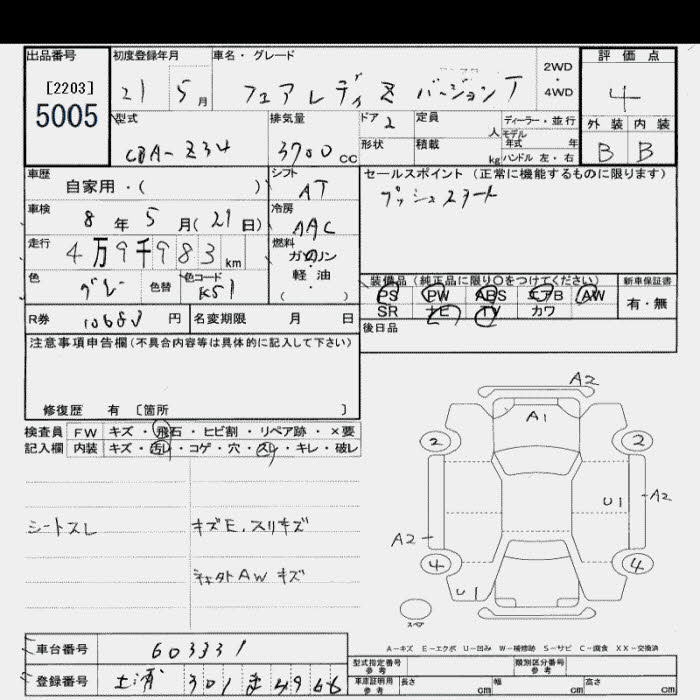 出品番号
[2203]
5005
初度登録年月
21 5月
車名・グレード
フェアレディZ バージョンT
2WD
・
4WD
評価点
4
外装 内装
B B
型式
CBA-Z34
排気量
3700cc
ドア 2
形状
定員 人
積載 kg
ディーラー・並行
モデル
年式 年
ハンドル 左・右
車歴
自家用・( )
シフト
AT
セールスポイント(正常に機能するものに限ります)
プッシュスタート
車検
8年5月(21日)
冷房
AAC
走行
4万9千983km
燃料
ガソリン
・
軽・油
( )
色
グレー
色替
色コード
K51
装備品(純正品に限り○をつけてください)
PS PW ABS エアB AW
SR ナビ TV カワ
新車保証書
有・無
R券 10680円
名変期限 月 日
後日品
注意事項申告欄(不具合内容等は具体的に記入して下さい)
修復歴 有 〔箇所 〕
検査員
記入欄
FW キズ・飛石・ヒビ割・リペア跡・×要
内装 キズ・汚れ・コゲ・穴・スレ・キレ・破レ
シートスレ
キズE、スリキズ
AWキズ
A2
A1
2 2
U1
A2
A2
4 4
U1
スペア
A-キズ E-エクボ U-凹み W-補修跡 S-サビ C-腐食 XX-交換済
車台番号 603331
登録番号 土浦 301 ま 4966
型式指定番号
参考
類別区分番号
参考
車庫証明用
参考
長さ cm
幅 cm
高さ cm